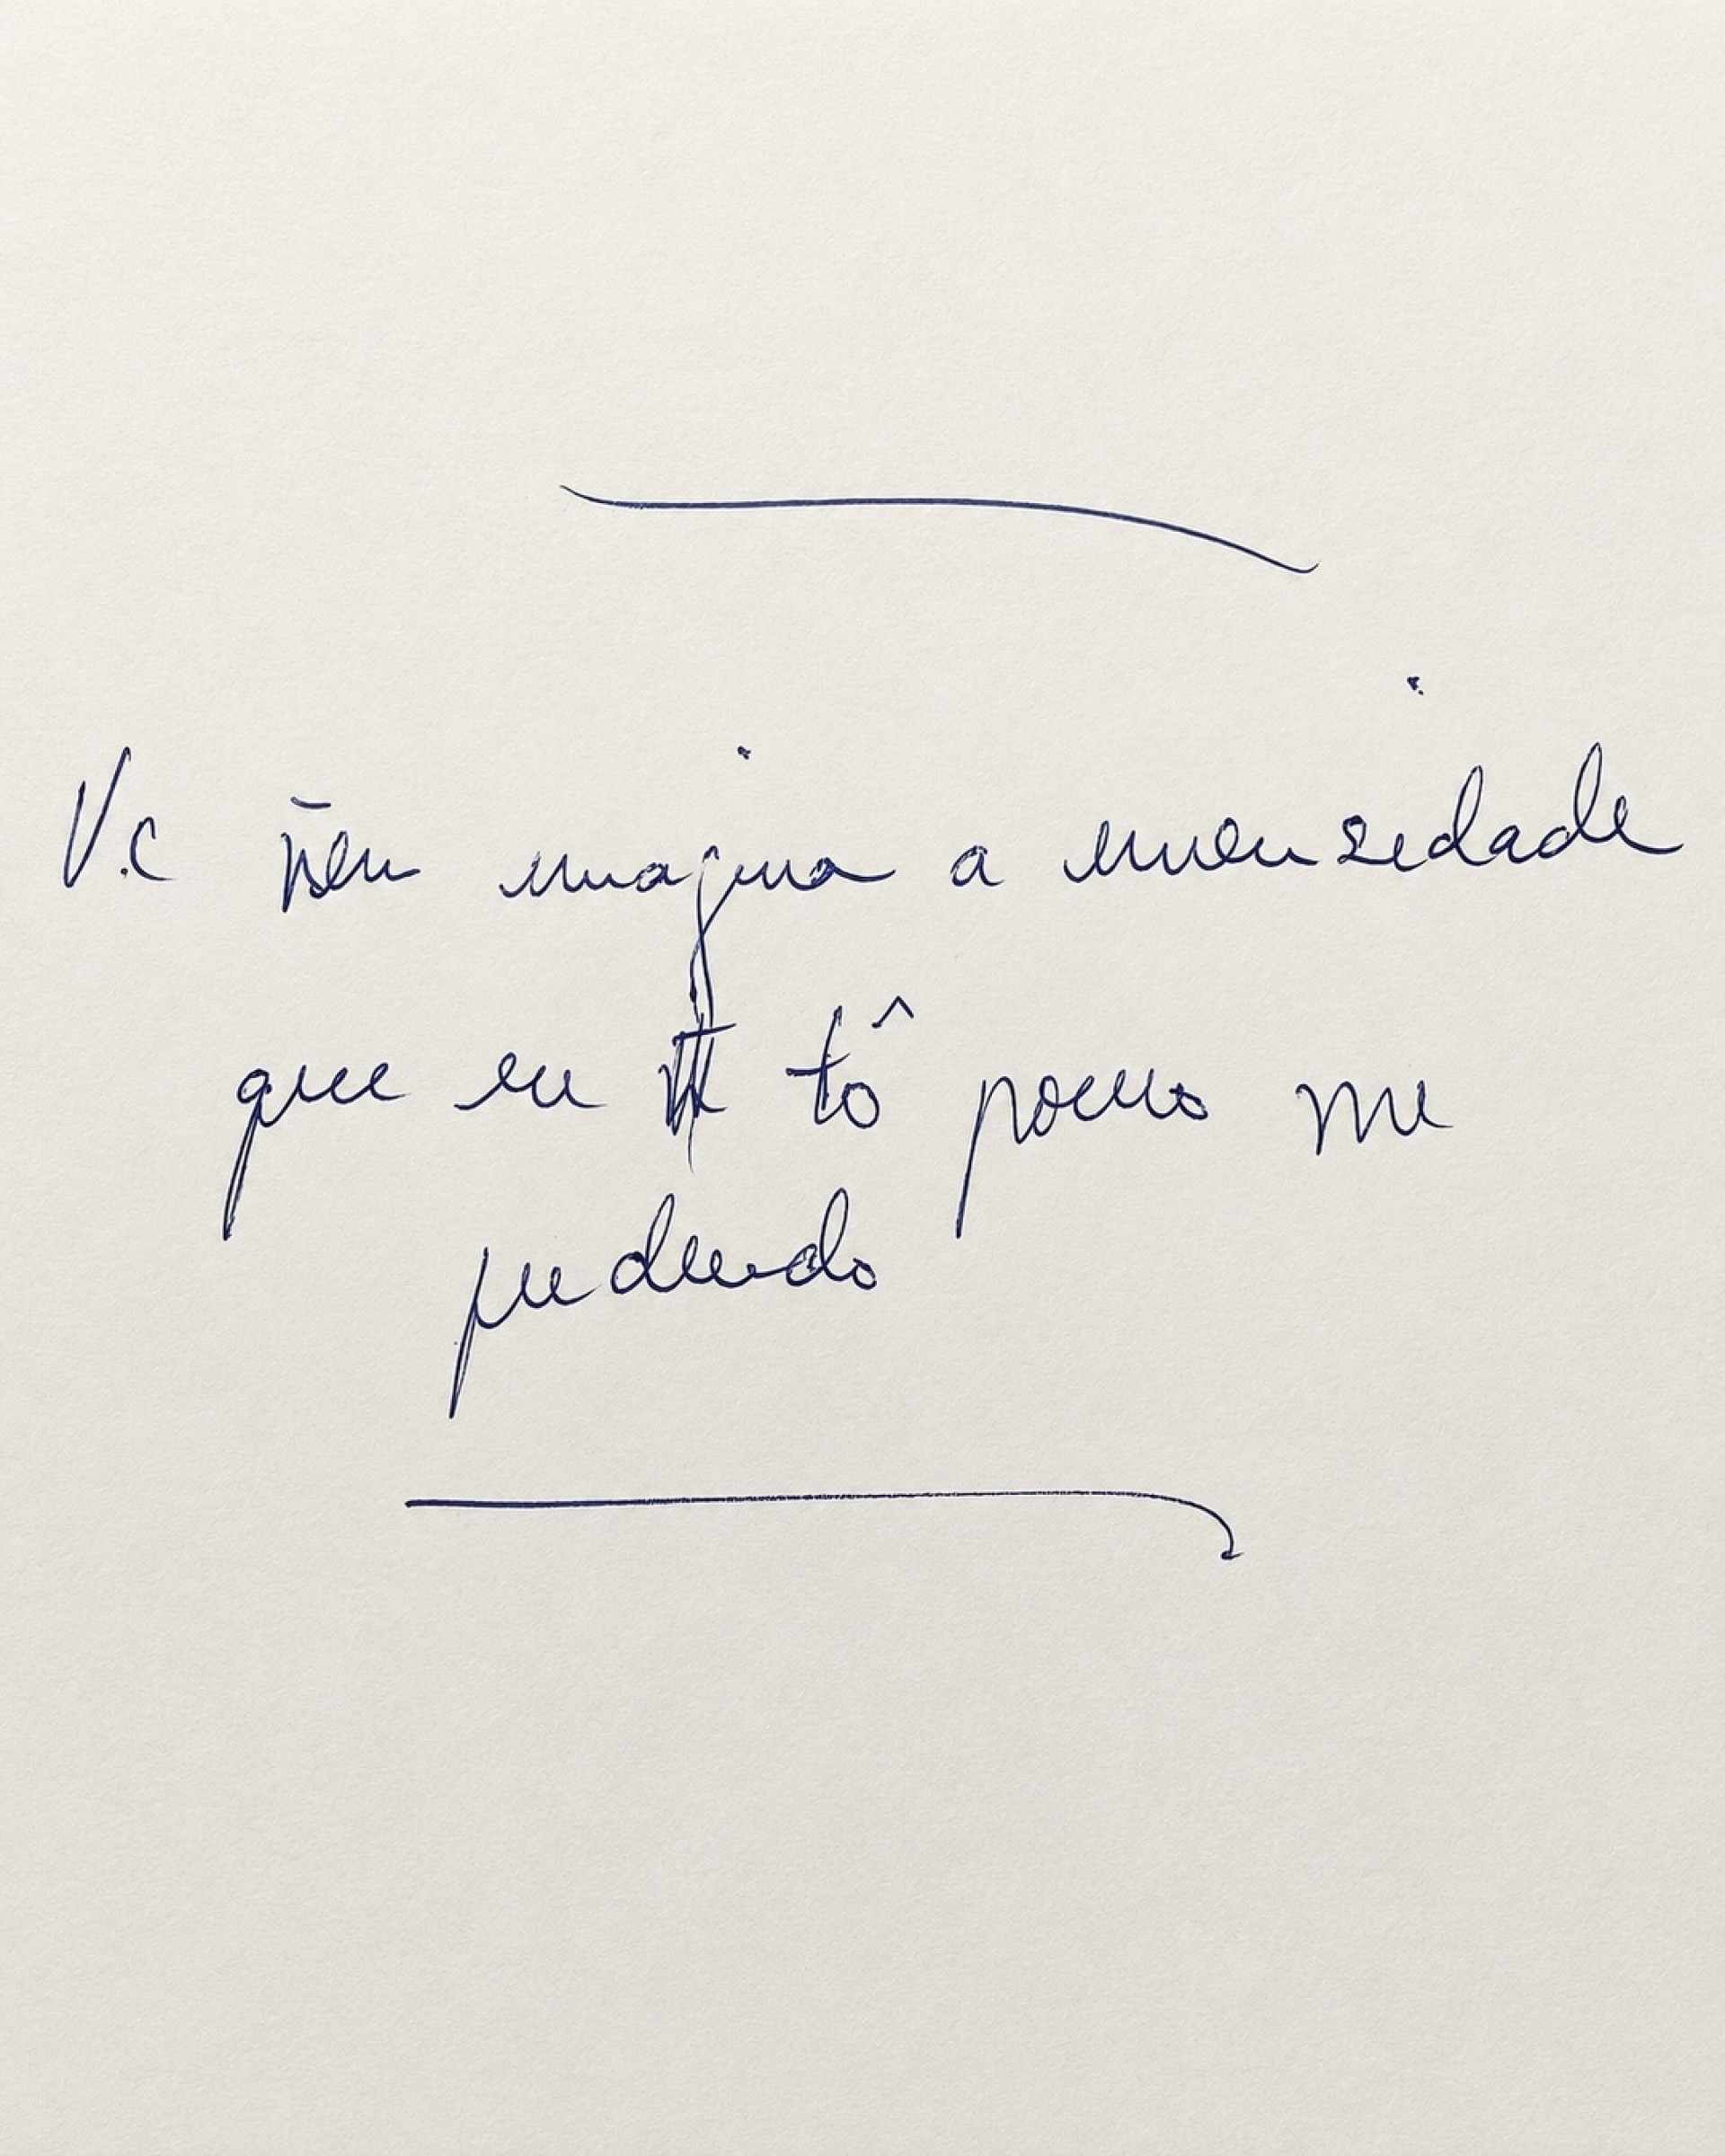 V.c nem imagina a imensidade
que eu tô pouco me
perdendo